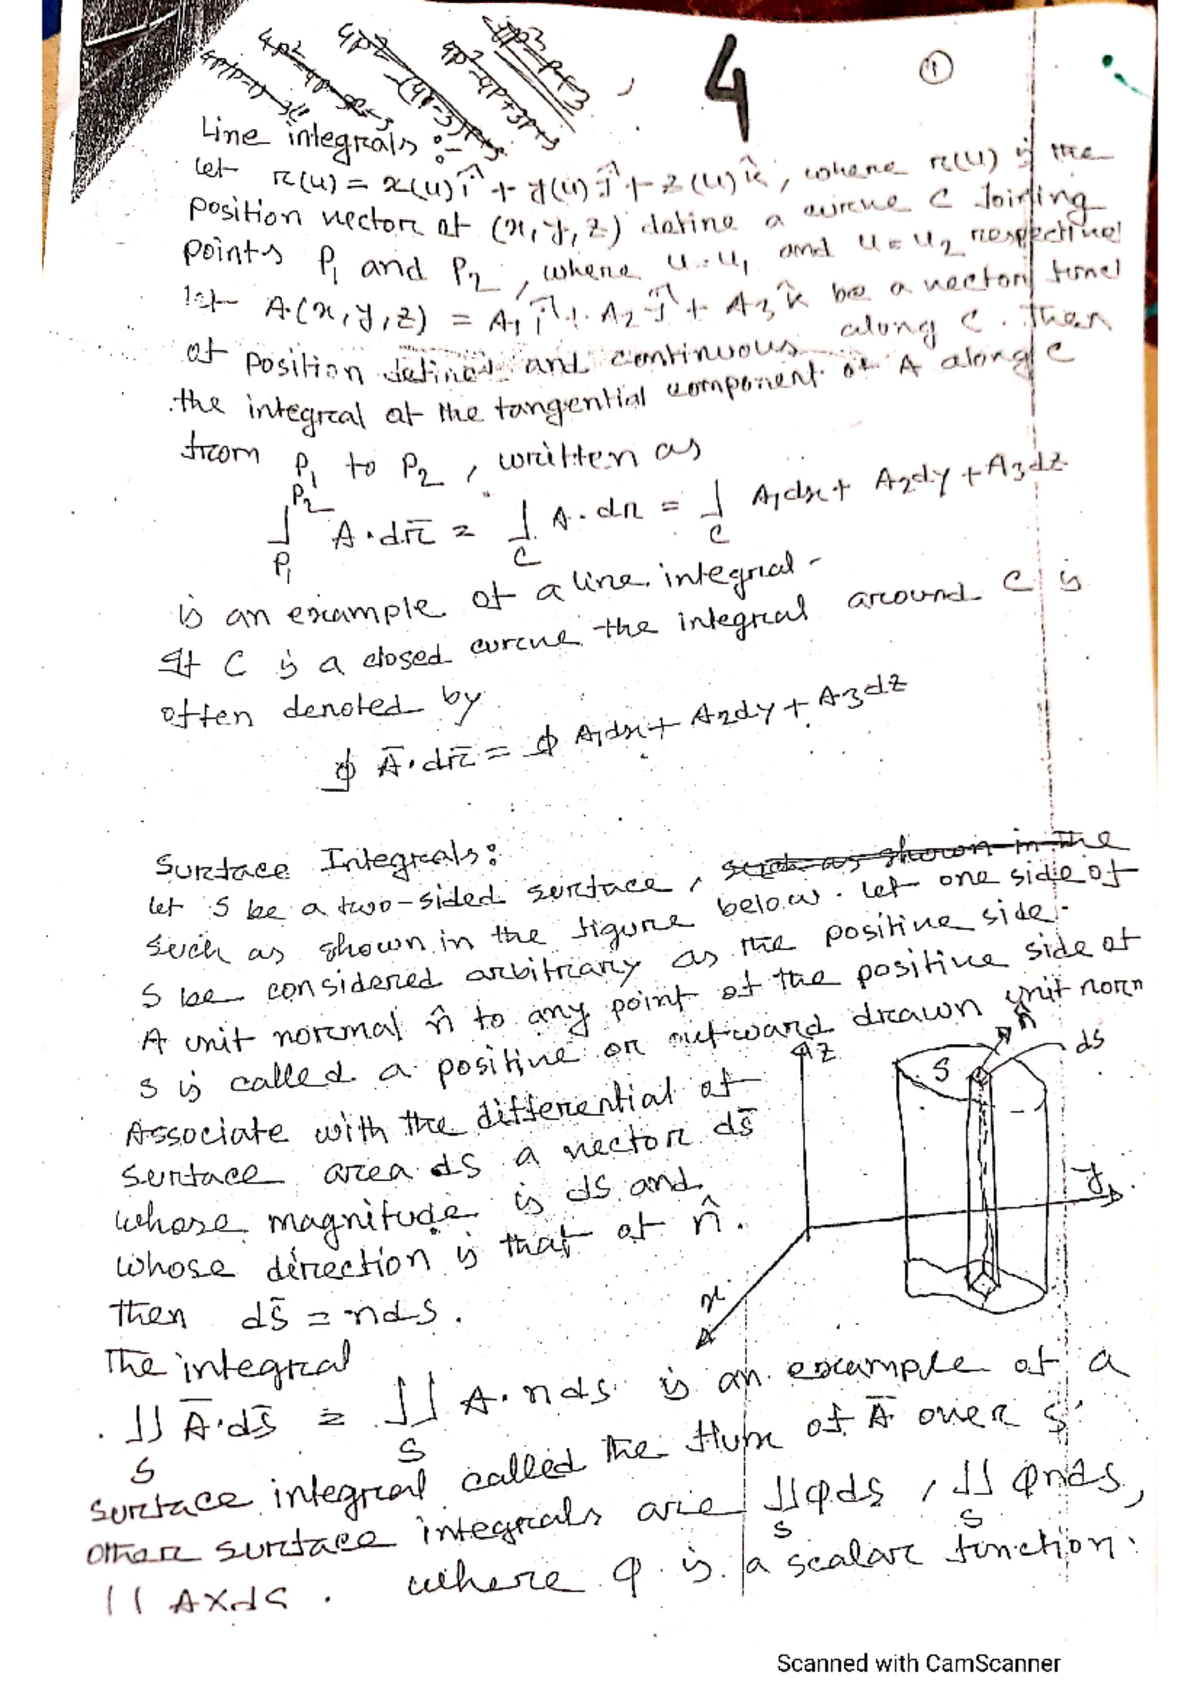 4p²-p+3
4
1
Line integrals :-
Let r(u) = x(u)î + y(u)ĵ + z(u)k̂, where r(u) is the
position vector of (x, y, z) define a curve C Joining
points P₁ and P₂, where u=u₁ and u=u₂ respective
let A(x, y, z) = A₁î + A₂ĵ + A₃k̂ be a vector
of position defined and continuous along C. Then
the integral of the tangential component of A along C
from P₁ to P₂, written as
∫_{P₁}^{P₂} A·dr̄ = ∫_C A·dr = ∫_C A₁dx + A₂dy + A₃dz
is an example of a line integral.
If C is a closed curve the integral around C is
often denoted by
∮ Ā·dr̄ = ∮ A₁dx + A₂dy + A₃dz
Surface Integrals:
let S be a two-sided surface, such as shown in the
such as shown in the figure below. Let one side of
S be considered arbitrary as the positive side.
A unit normal n̂ to any point of the positive side of
S is called a positive or outward drawn unit norm
Associate with the differential of
surface area ds a vector ds̄
whose magnitude is ds and
whose direction is that of n̂.
then ds̄ = nds.
z
S
n̂
ds
y
x
The integral
∬_S Ā·ds̄ = ∬_S A·nds is an example of a
surface integral called the flux of Ā over S
other surface integrals are ∬_S φds, ∬_S φnds,
∬ A×ds. where φ is a scalar function.
Scanned with CamScanner